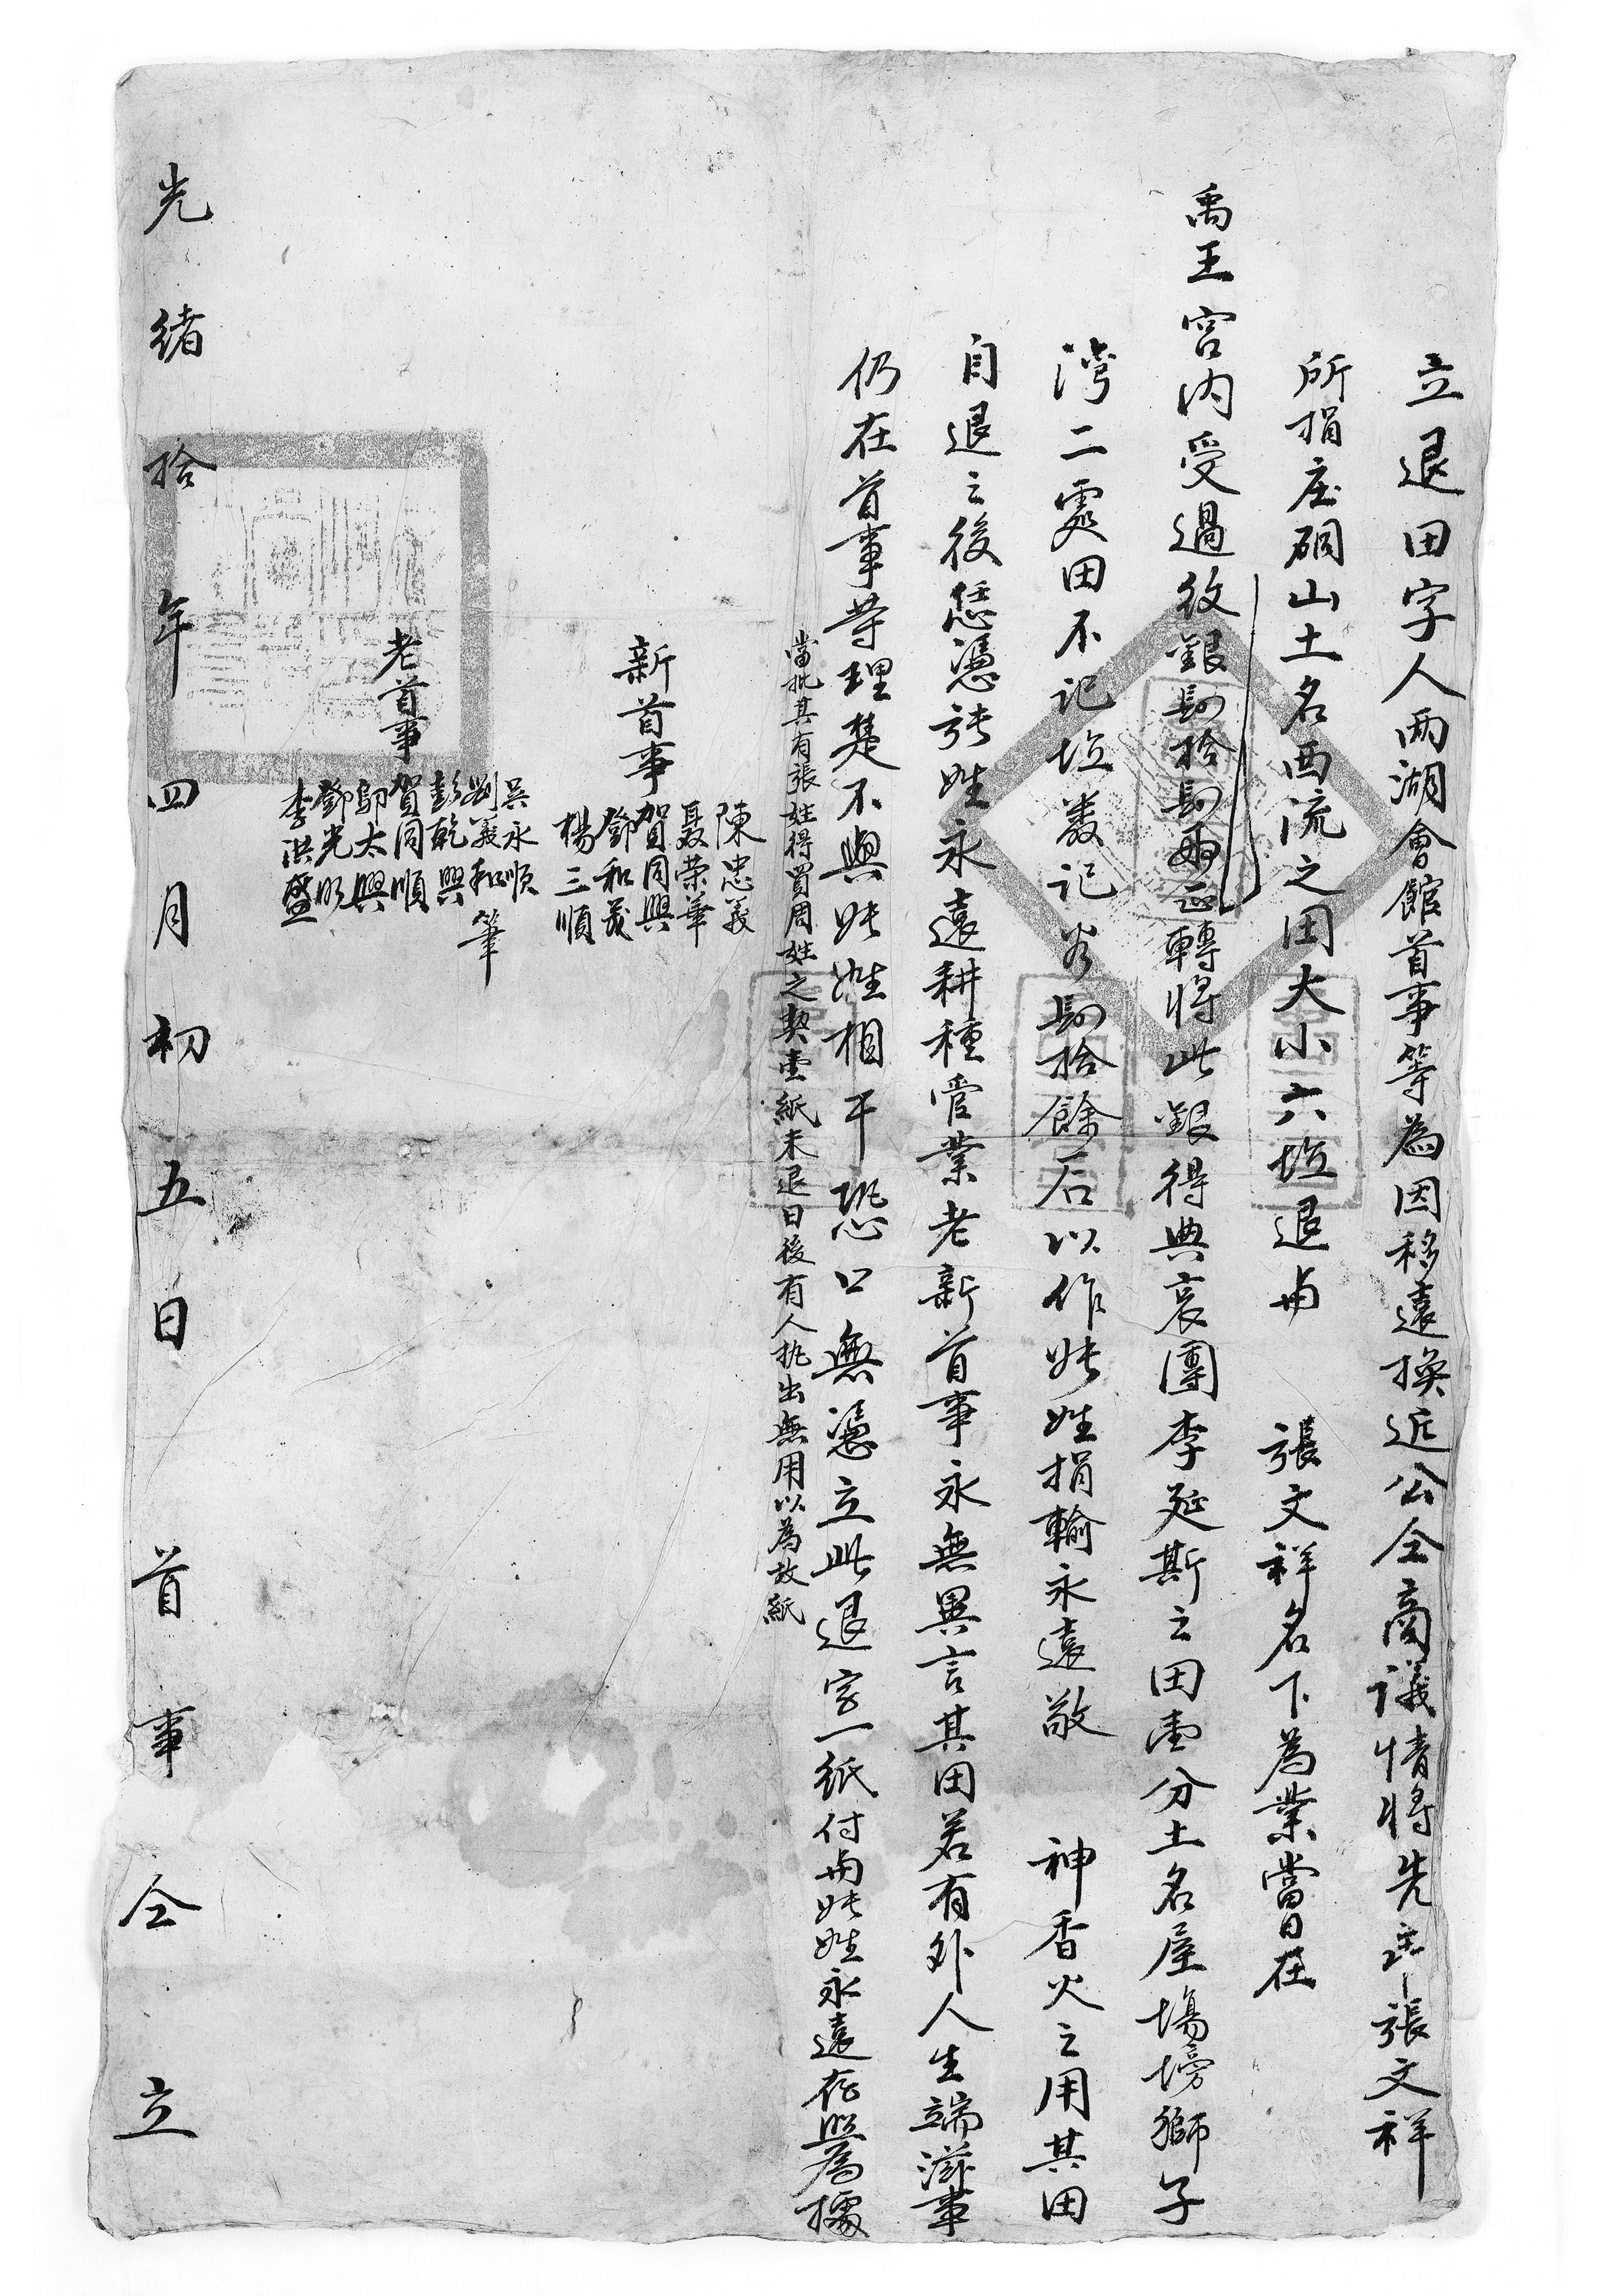 立退田字人兩湖會館首事等為因移遠換近公仝商議情將先年張文祥
所捐庄硐山土名西流之田大小六坵退與 張文祥名下為業當日在
禹王宮內受過紋銀捌拾捌両正轉將此銀得典裒團李延斯之田壹分土名屋塲塝獅子
灣二處田不記坵數記谷捌拾餘石以作張姓捐輸永遠敬 神香火之用其田
自退之後恁憑張姓永遠耕種管業老新首事永無異言其田若有外人生端滋事
仍在首事等理楚不與張姓相干恐口無憑立此退字一紙付與張姓永遠存照為據
當批其有張姓得買周姓之契壹紙未退日後有人執出無用以為故紙
新首事
陳忠義
聶荣華
賀同興
鄧和茂
楊三順
老首事
吳永順
劉義和筆
彭乾興
賀同順
鄒太興
鄧光明
李洪盛
光緒拾年四月初五日 首事仝立